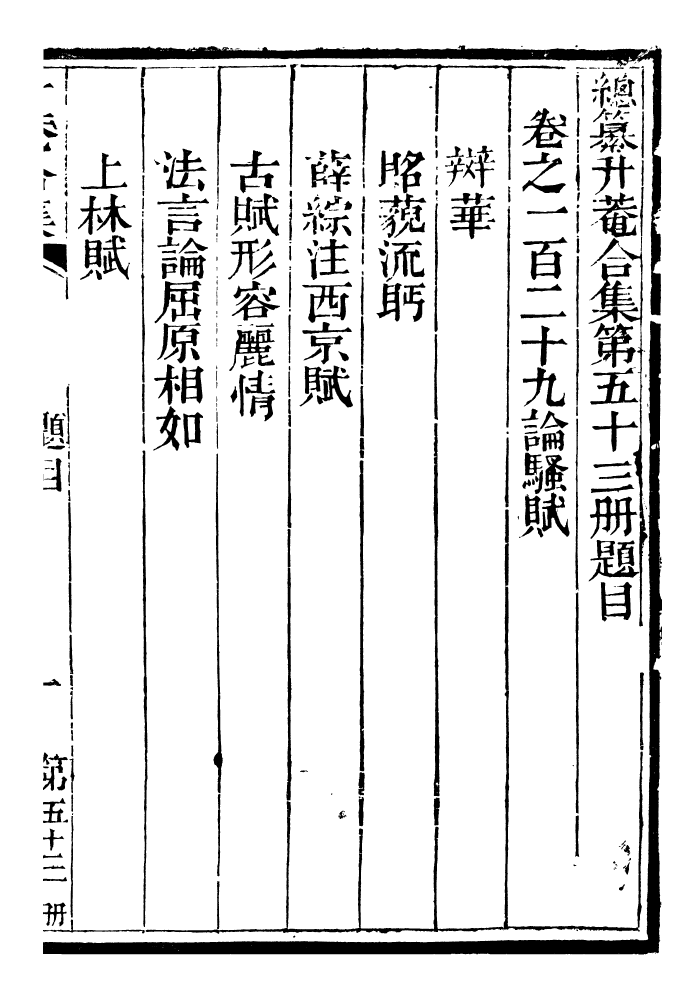 總纂升菴合集第五十三册題目
卷之一百二十九論騷賦
辯華
昭藐流眄
薛綜注西京賦
古賦形容麗情
法言論屈原相如
上林賦
題目
一
第五十三册